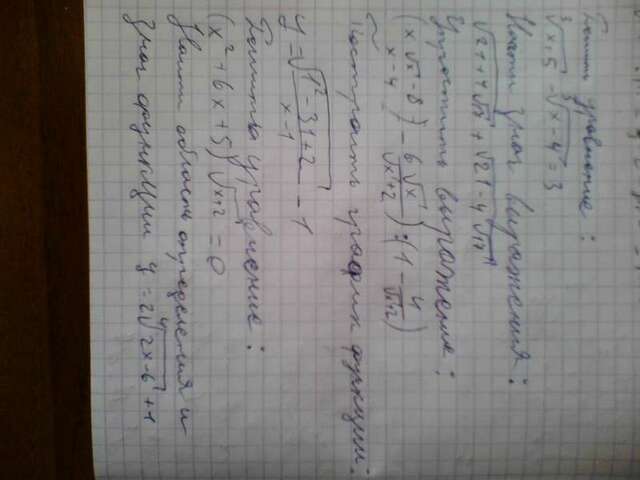 Решить уравнение:
∛x+5 - ∛x-4 = 3
Найти знач выражения:
√21+4√17 + √21-4√17
Упростить выражение:
(x√x-8 / x-4) - 6√x / √x+2) : (1 - 4 / √x+2)
Построить график функции:
y = √x²-3x+2 / x-1 - 1
Решить уравнение:
(x²+6x+5)√x+2 = 0
Найти область определения и
знач функции y = 2∜2x-6 + 1